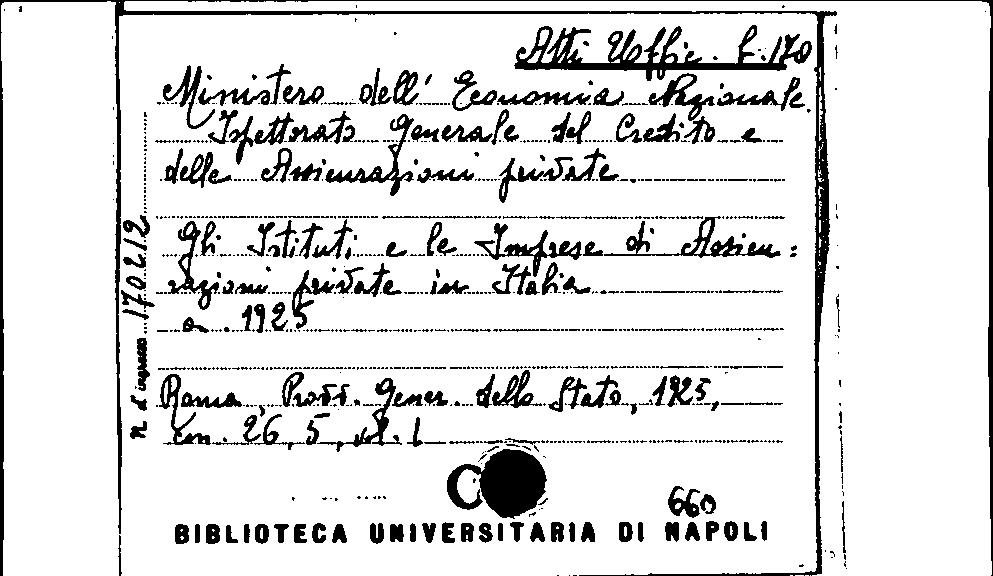 Atti Uffic. L. 170
Ministero dell' Economia Nazionale.
Ispettorato Generale del Credito e
delle Assicurazioni private.
Gli Istituti e le Imprese di Assicu:
razioni private in Italia.
a. 1925
Roma, Provv. Gener. dello Stato, 1925,
cm. 26,5, vol. 1
n. d'ingresso 170212
C
660
BIBLIOTECA UNIVERSITARIA DI NAPOLI